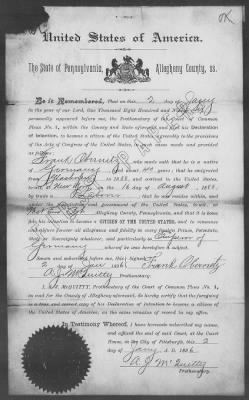 OK
United States of America.
The State of Pennsylvania, Allegheny County, ss.
Be it Remembered, That on this 2 day of Jany
in the year of our Lord, One Thousand Eight Hundred and Ninety
personally appeared before me, the Prothonotary of the Court of Common
Pleas No. 1, within the County and State aforesaid and made his Declaration
of Intention, to become a citizen of the United States, agreeably to the provisions
of the Acts of the Congress of the United States, in such cases made and provided
as follows:
Frank who made oath that he is a native
of Germany, about 34 years; that he emigrated
from in 188 and arrived in the United States,
at New York on the 16 day of August 188
by trade a that he was residing within, and
under the government of the United States, to wit: in
Allegheny County, Pennsylvania, and that it is bona
fide his intention to become a CITIZEN OF THE UNITED STATES, and to renounce
and abjure forever all allegiance and fidelity to every foreign Prince, Potentate,
State or Sovereignty whatever, and particularly to Emperor of
Germany whereof he was heretofore a subject.
Sworn and subscribed before me, this
2 day of Jan 1896 Frank
A. J. McQuitty Prothonotary.
I, A. J. McQUITTY, Prothonotary of the Court of Common Pleas No. 1,
in and for the County of Allegheny aforesaid, do hereby certify that the foregoing
is a true and correct copy of his Declaration of Intention to become a citizen of the
United States of America, as the same remains of record in my office.
In Testimony Whereof, I have hereunto subscribed my name,
and affixed the seal of said Court, at the Court
House, in the City of Pittsburgh, this 2
day of Jany A. D. 1896
A. J. McQuitty
Prothonotary.